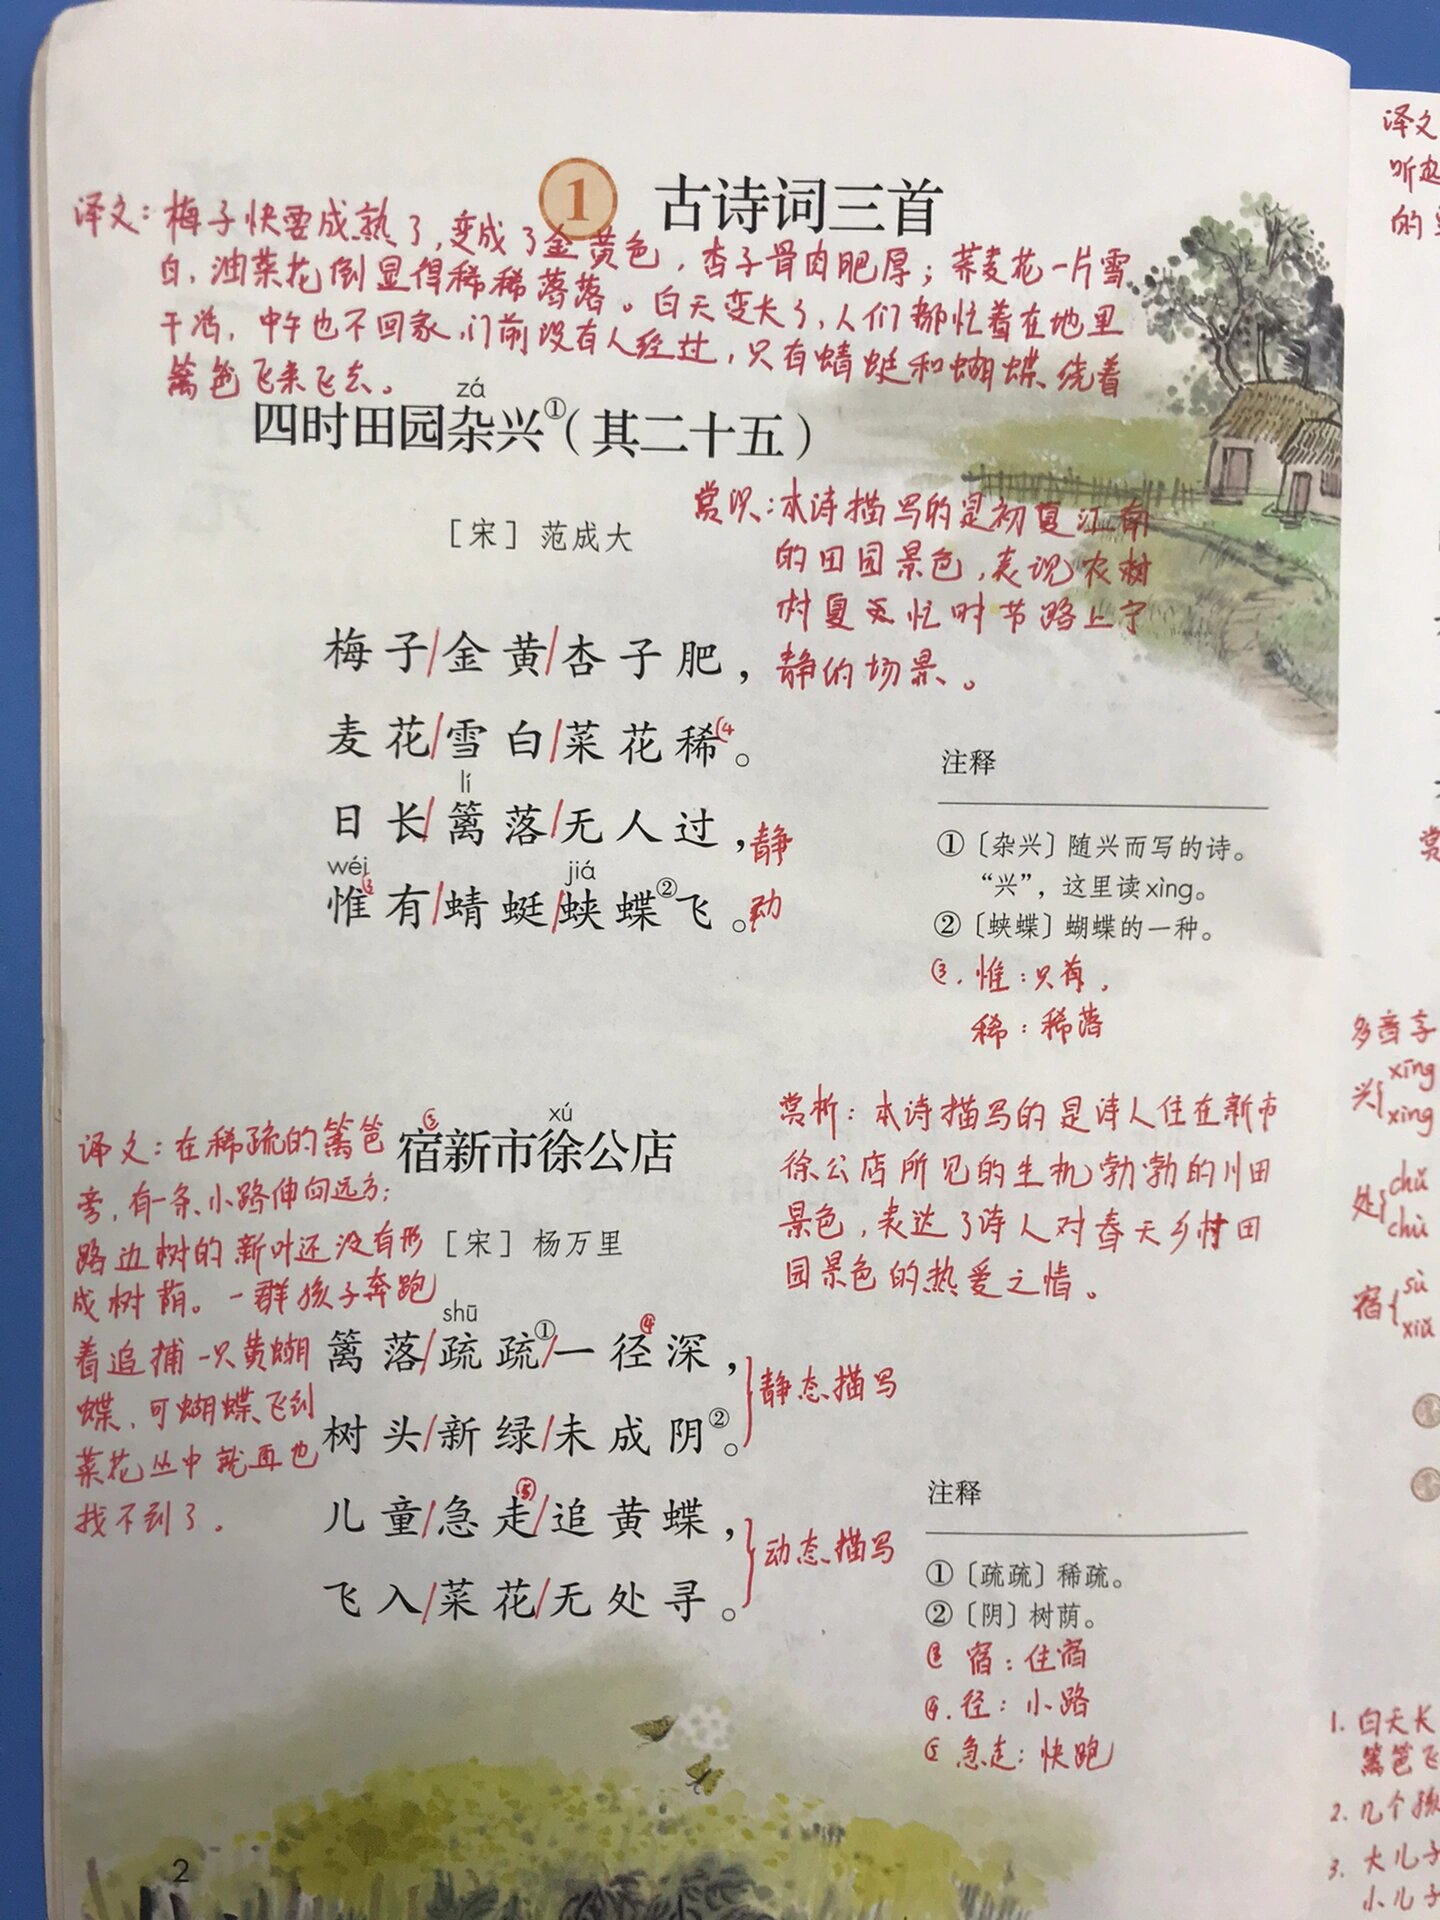 1 古诗词三首
译文：梅子快要成熟了，变成了金黄色，杏子骨肉肥厚；荞麦花一片雪
白，油菜花倒显得稀稀落落。白天变长了，人们都忙着在地里
干活，中午也不回家，门前没有人经过，只有蜻蜓和蝴蝶绕着
篱笆飞来飞去。
zá
四时田园杂兴①（其二十五）
［宋］范成大
赏识：本诗描写的是初夏江南
的田园景色，表现农村
村夏天忙时节路上宁
静的场景。
梅子/金黄/杏子肥，
麦花/雪白/菜花稀④。
lí
日长/篱落/无人过，静
wéi jiá
惟③有/蜻蜓/蛱蝶②飞。动
注释
①〔杂兴〕随兴而写的诗。
“兴”，这里读xìng。
②〔蛱蝶〕蝴蝶的一种。
③.惟：只有，
稀：稀落
xú
宿③新市徐公店
［宋］杨万里
译文：在稀疏的篱笆
旁，有一条小路伸向远方；
路边树的新叶还没有形
成树荫。一群孩子奔跑
着追捕一只黄蝴
蝶，可蝴蝶飞到
菜花丛中就再也
找不到了。
赏析：本诗描写的是诗人住在新市
徐公店所见的生机勃勃的川田
景色，表达了诗人对春天乡村田
园景色的热爱之情。
shū
篱落/疏疏①/一径④深，
树头/新绿/未成阴②。
静态描写
儿童/急走⑤/追黄蝶，
飞入/菜花/无处寻。
动态描写
注释
①〔疏疏〕稀疏。
②〔阴〕树荫。
③宿：住宿
④.径：小路
⑤急走：快跑
2
译文
听起
的
赏
多音字
兴{xīng
xìng
处{chǔ
chù
宿{sù
xiǔ
1.白天长
篱笆飞
2.几个孩
3.大儿子
小儿子